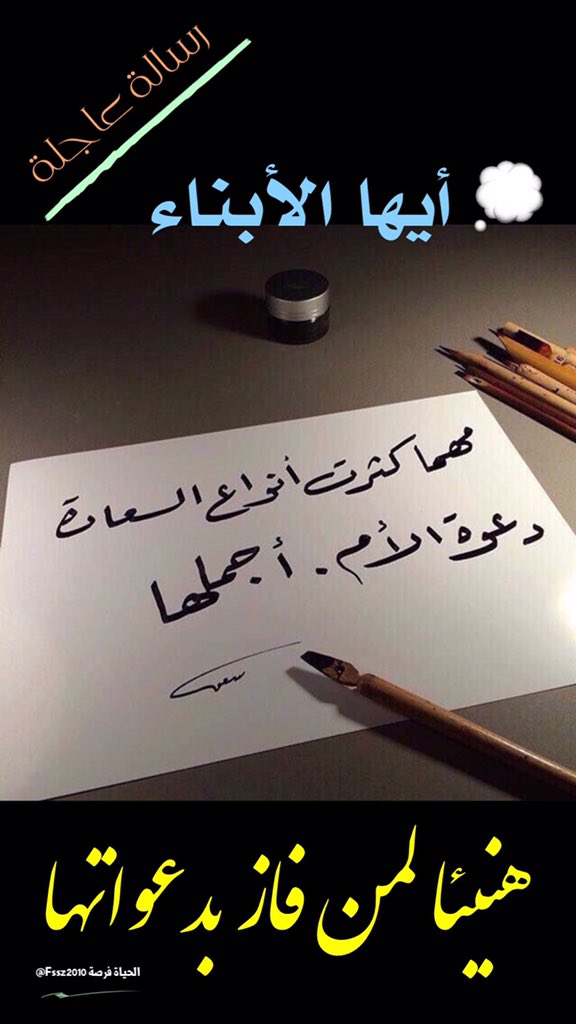 رسالة عاجلة
أيها الأبناء
مهما كثرت أنواع السعادة
دعوة الأم . أجملها
هنيئا لمن فاز بدعواتها
الحياة فرصة Fssz2010@